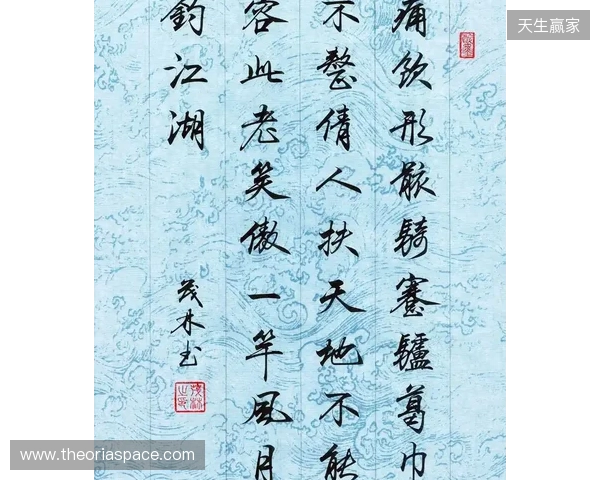 痛飲形骸騎蹇驢葛巾
不整倩人扶天地不能
容此老笑傲一竿風月
釣江湖
茂林书
天生赢家
www.theoriaspace.com